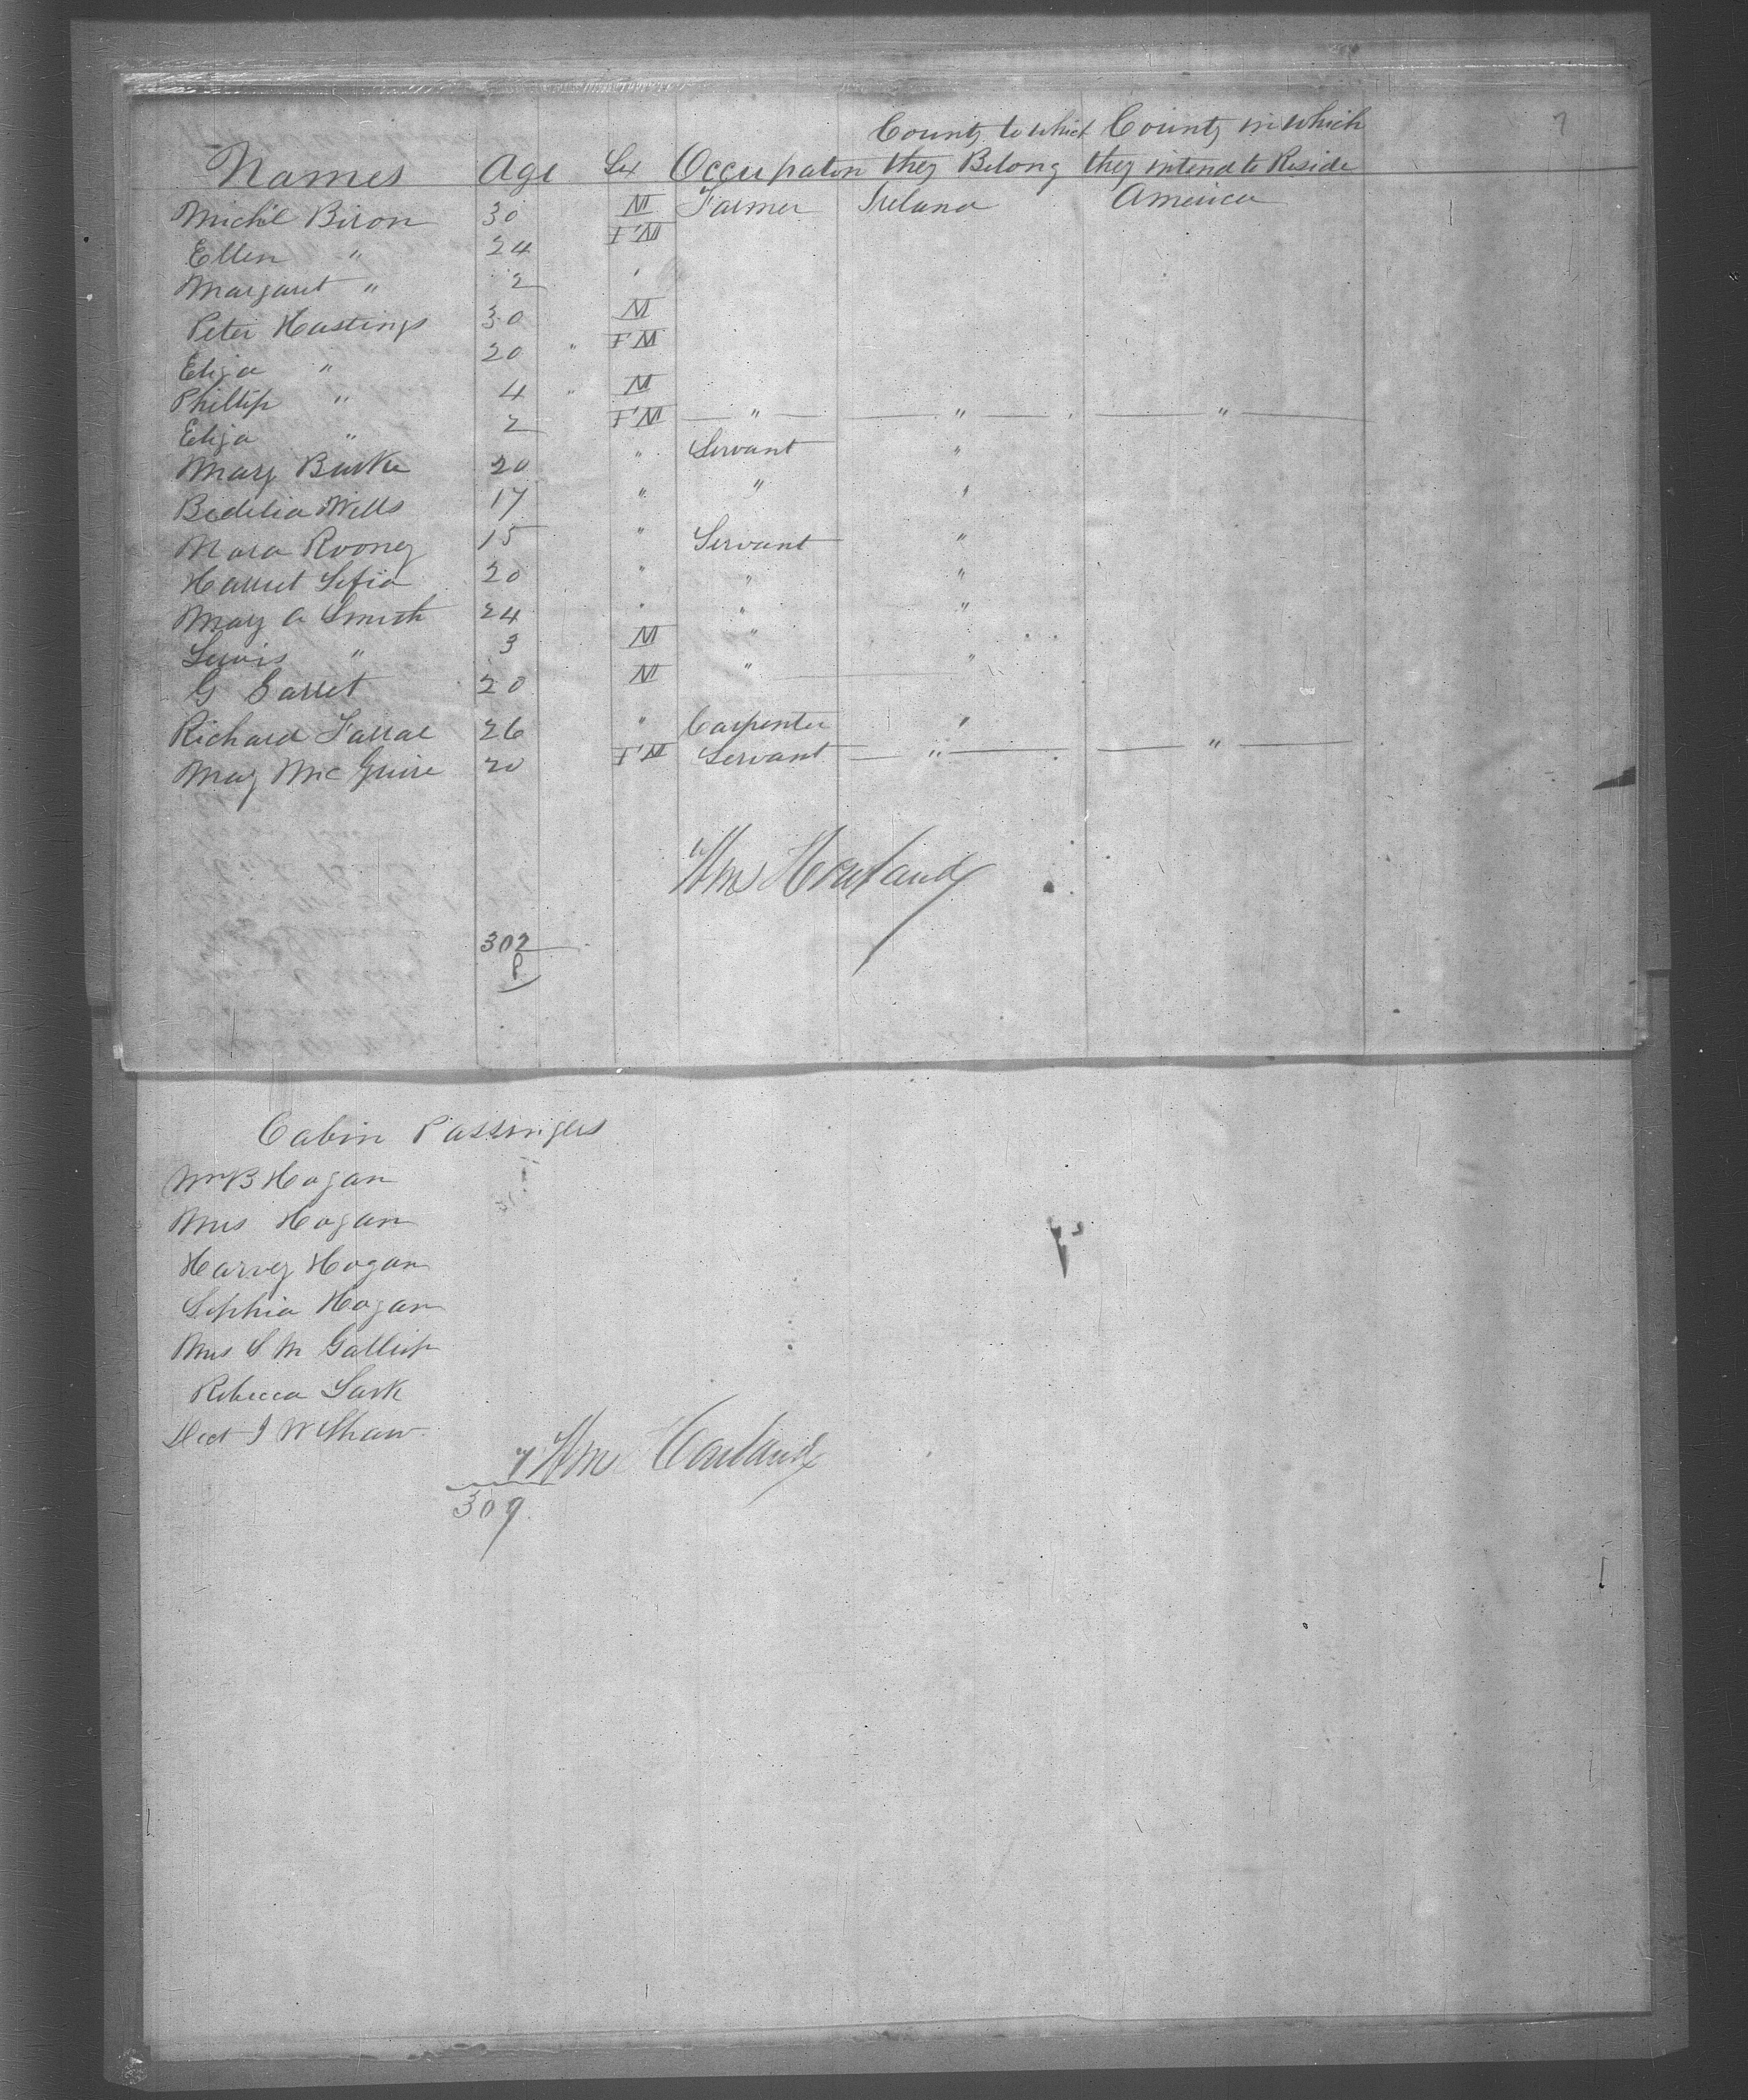 7
County to which County in which
Names Age Sex Occupation they Belong they intend to Reside
Michl Biron 30 M Farmer Ireland America
Ellen " 24 FM
Margaret " 2 '
Peter Hastings 30 M
Eliza " 20 " FM
Phillip " 4 " M
Eliza " 2 FM " " "
Mary Burke 20 " Servant "
Bedelia Wills 17 " " "
Rooney 15 " Servant "
Harriet 20 " " "
Mary A Smith 24 " " "
Lewis " 3 M "
G Garret 20 M " "
Richard Farral 26 " Carpenter "
Mary McGuire 20 FM Servant " "
Wm Howland
302
P
Cabin Passingers
Mr B Hogan
Mrs Hogan
Harvey Hogan
Sophia Hogan
Mrs S M Gallup
Rebecca Lark
Doct J W Shaw
7 Wm Howland
309